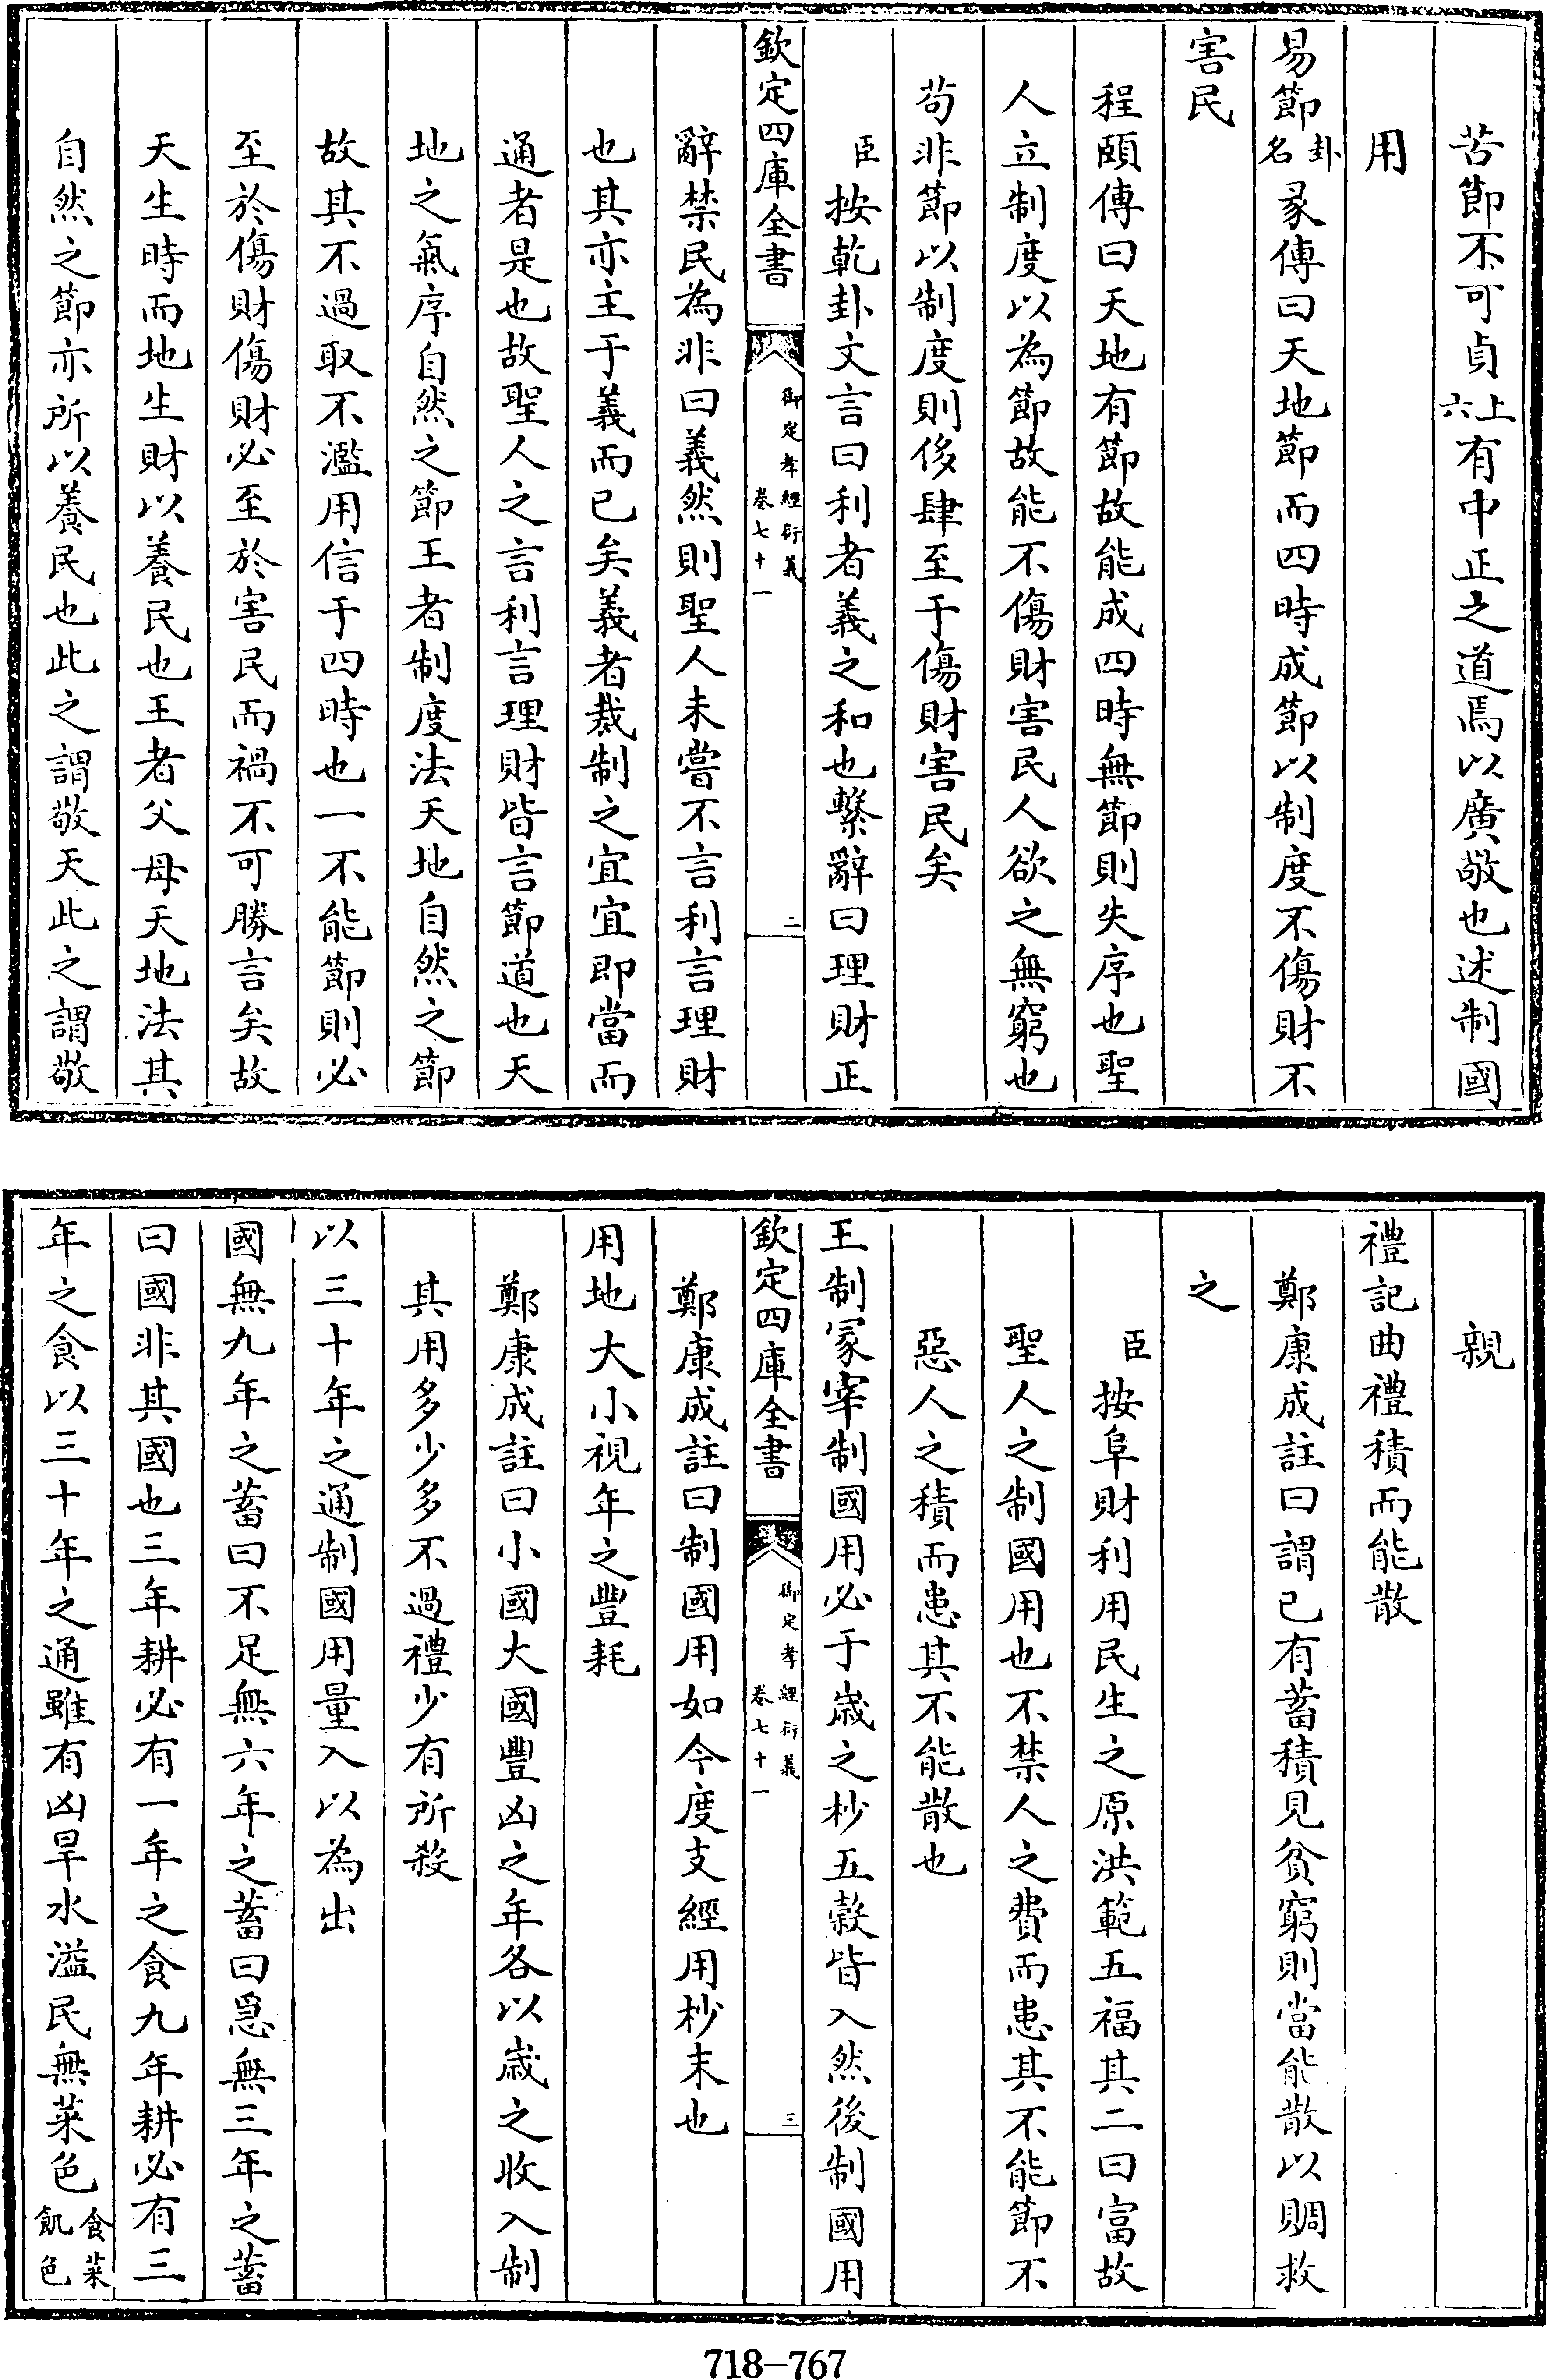 苦節不可貞上六有中正之道焉以廣敬也述制國
用
易節卦名彖傳曰天地節而四時成節以制度不傷財不
害民
程頤傳曰天地有節故能成四時無節則失序也聖
人立制度以為節故能不傷財害民人欲之無窮也
苟非節以制度則侈肆至于傷財害民矣
臣按乾卦文言曰利者義之和也繫辭曰理財正
欽定四庫全書
御定孝經衍義
卷七十一
二
辭禁民為非曰義然則聖人未嘗不言利言理財
也其亦主于義而已矣義者裁制之宜宜即當而
通者是也故聖人之言利言理財皆言節道也天
地之氣序自然之節王者制度法天地自然之節
故其不過取不濫用信于四時也一不能節則必
至於傷財傷財必至於害民而禍不可勝言矣故
天生時而地生財以養民也王者父母天地法其
自然之節亦所以養民也此之謂敬天此之謂敬
親
禮記曲禮積而能散
鄭康成註曰謂已有蓄積見貧窮則當能散以賙救
之
臣按阜財利用民生之原洪範五福其二曰富故
聖人之制國用也不禁人之費而患其不能節不
惡人之積而患其不能散也
王制冢宰制國用必于歲之杪五穀皆入然後制國用
欽定四庫全書
御定孝經衍義
卷七十一
三
鄭康成註曰制國用如今度支經用杪末也
用地大小視年之豐耗
鄭康成註曰小國大國豐凶之年各以歲之收入制
其用多少多不過禮少有所殺
以三十年之通制國用量入以為出
國無九年之蓄曰不足無六年之蓄曰急無三年之蓄
曰國非其國也三年耕必有一年之食九年耕必有三
年之食以三十年之通雖有凶旱水溢民無菜色食菜飢色
718-767